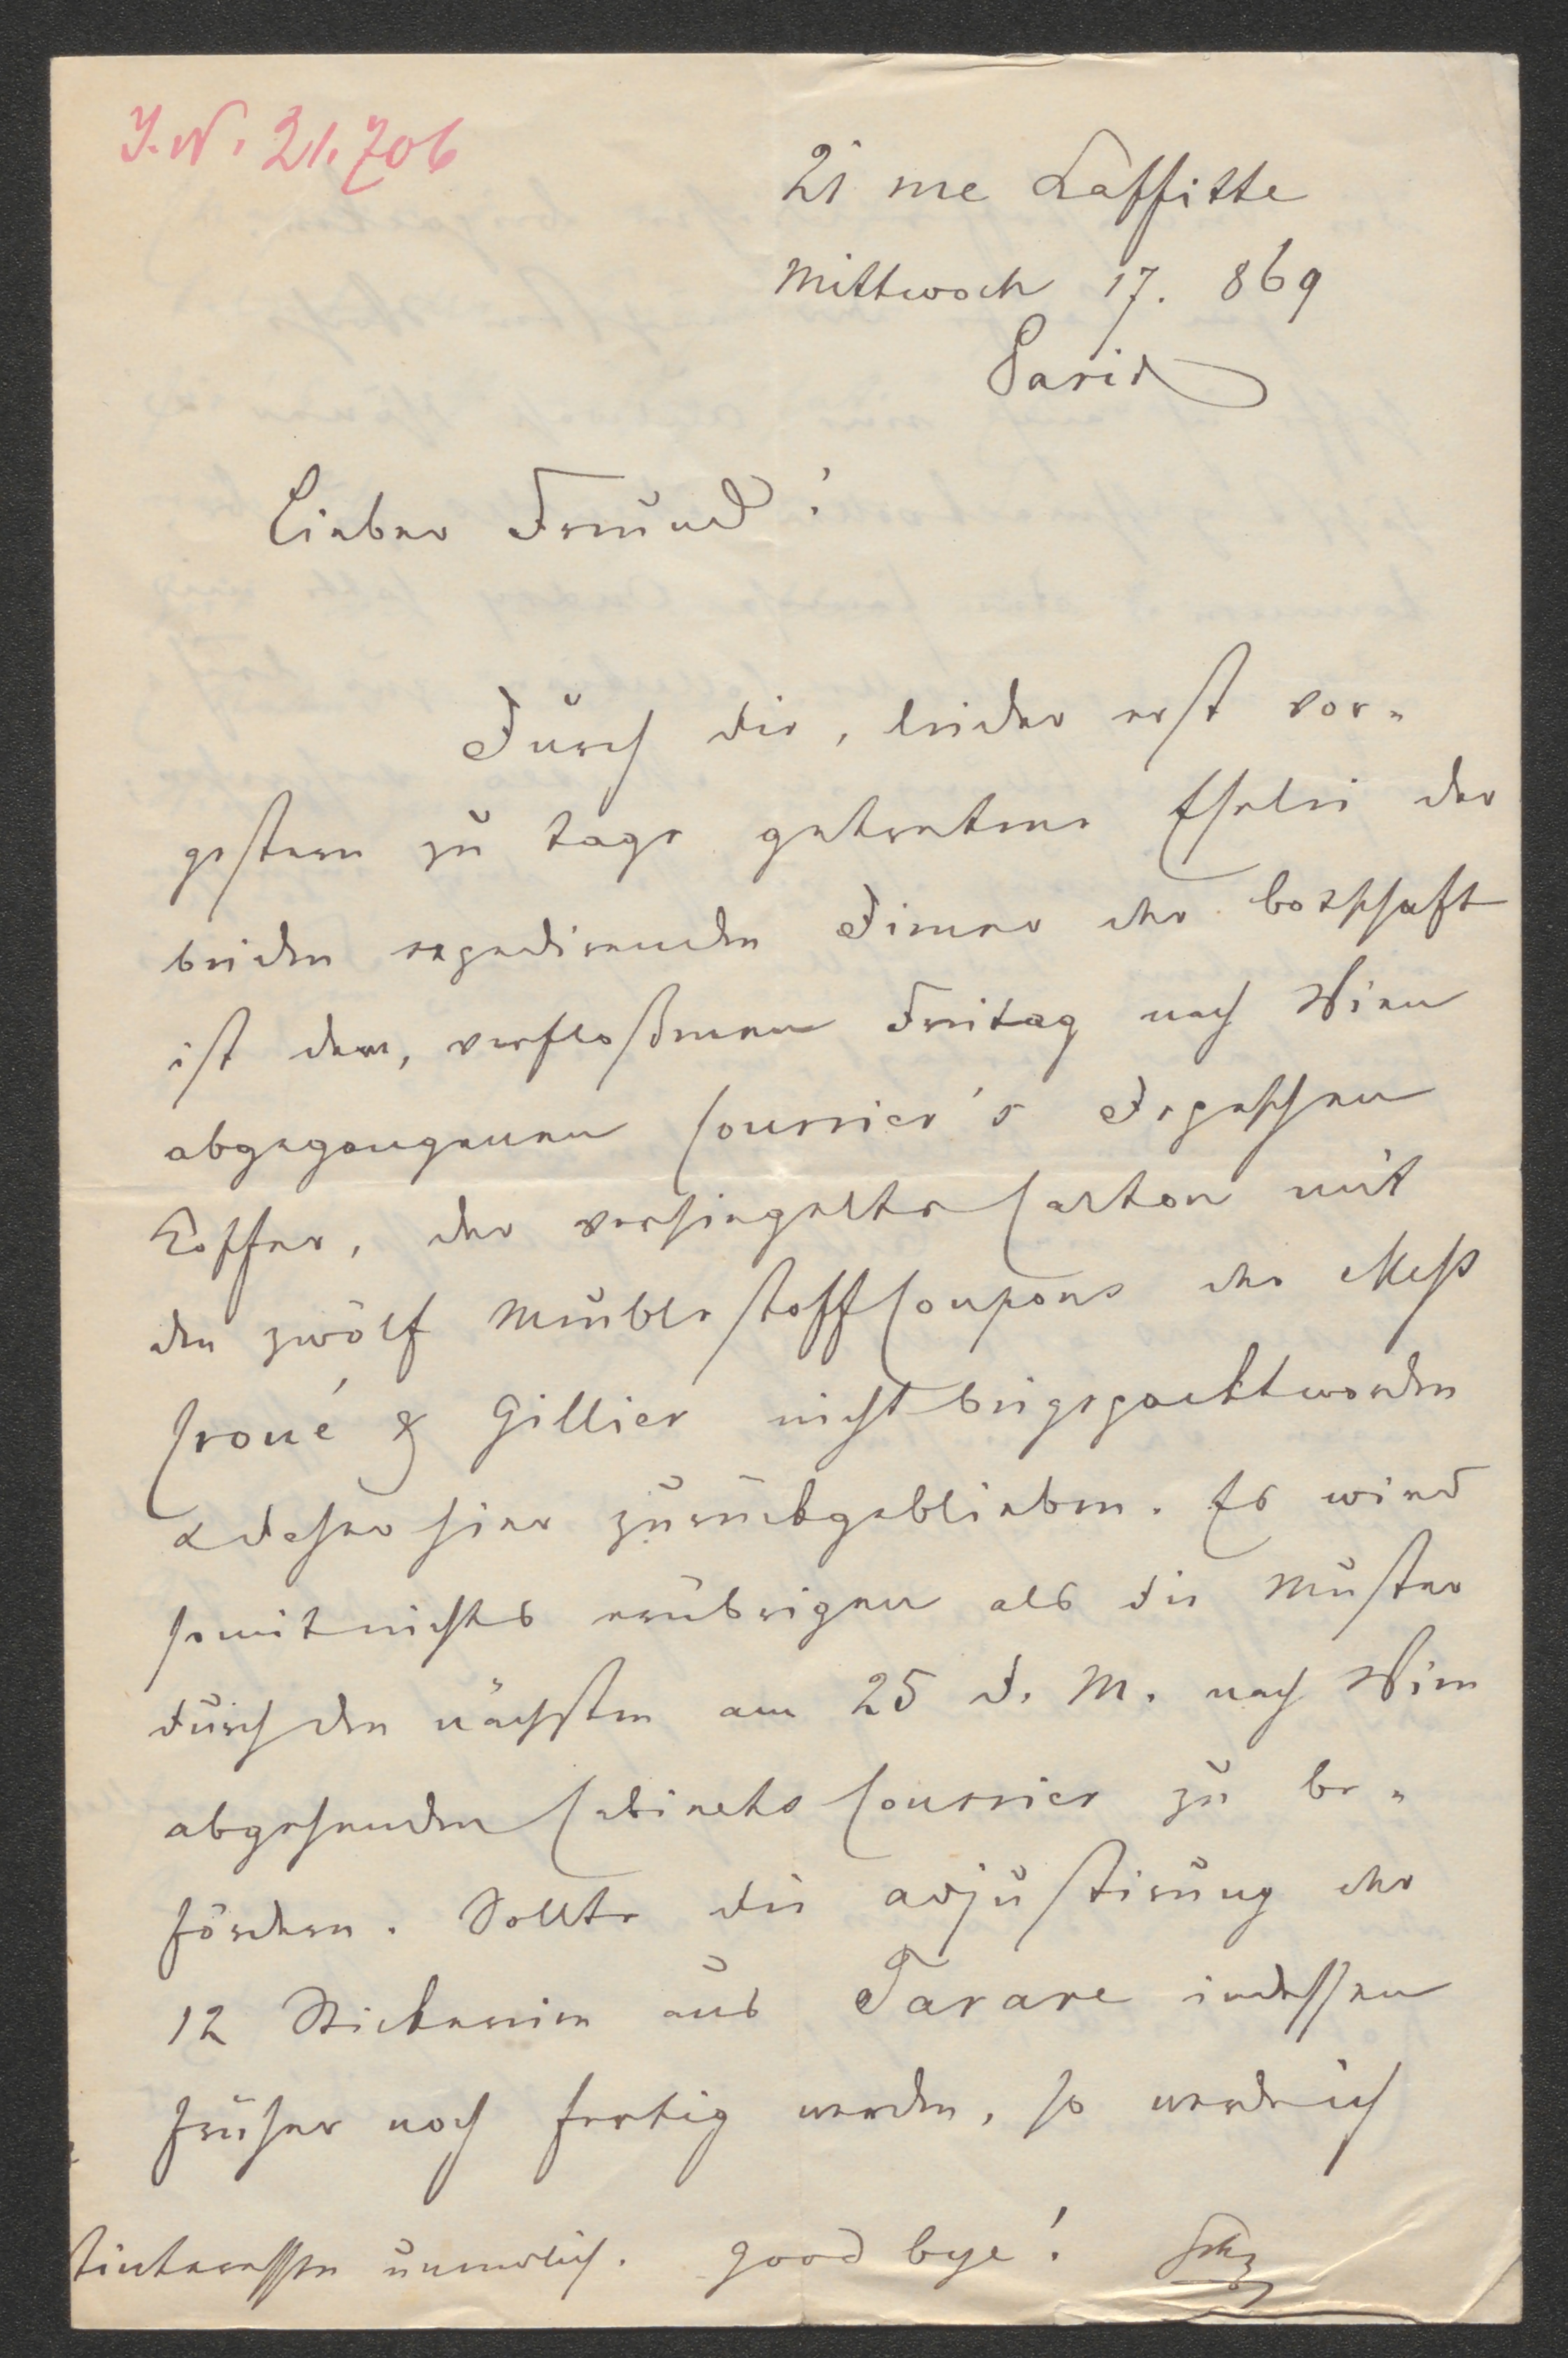 J. N. 21.706
21 rue Laffitte
Mittwoch 17. 869
Paris
Lieber Freund!
Durch die, leider erst vor-
gestern zu tage getretene Eselei der
beiden expedirenden Diener der botschaft
ist dem, verfloßenen Freitag nach Wien
abgegangenen Courrier's Depeschen
Koffer, der versiegelte Carton mit
den zwölf Meublestoff Coupons der Mess
Croué & Gillier nicht beigepackt worden
& daher hier zurückgeblieben. Es wird
somit nichts erübrigen als die Muster
durch den nächsten am 25 d. M. nach Wien
abgehenden Cabinets Courrier zu be-
fördern. Sollte die adjustirung der
12 Stickereien aus Tarare indessen
früher noch fertig werden, so werde ich
unendlich. good bye!